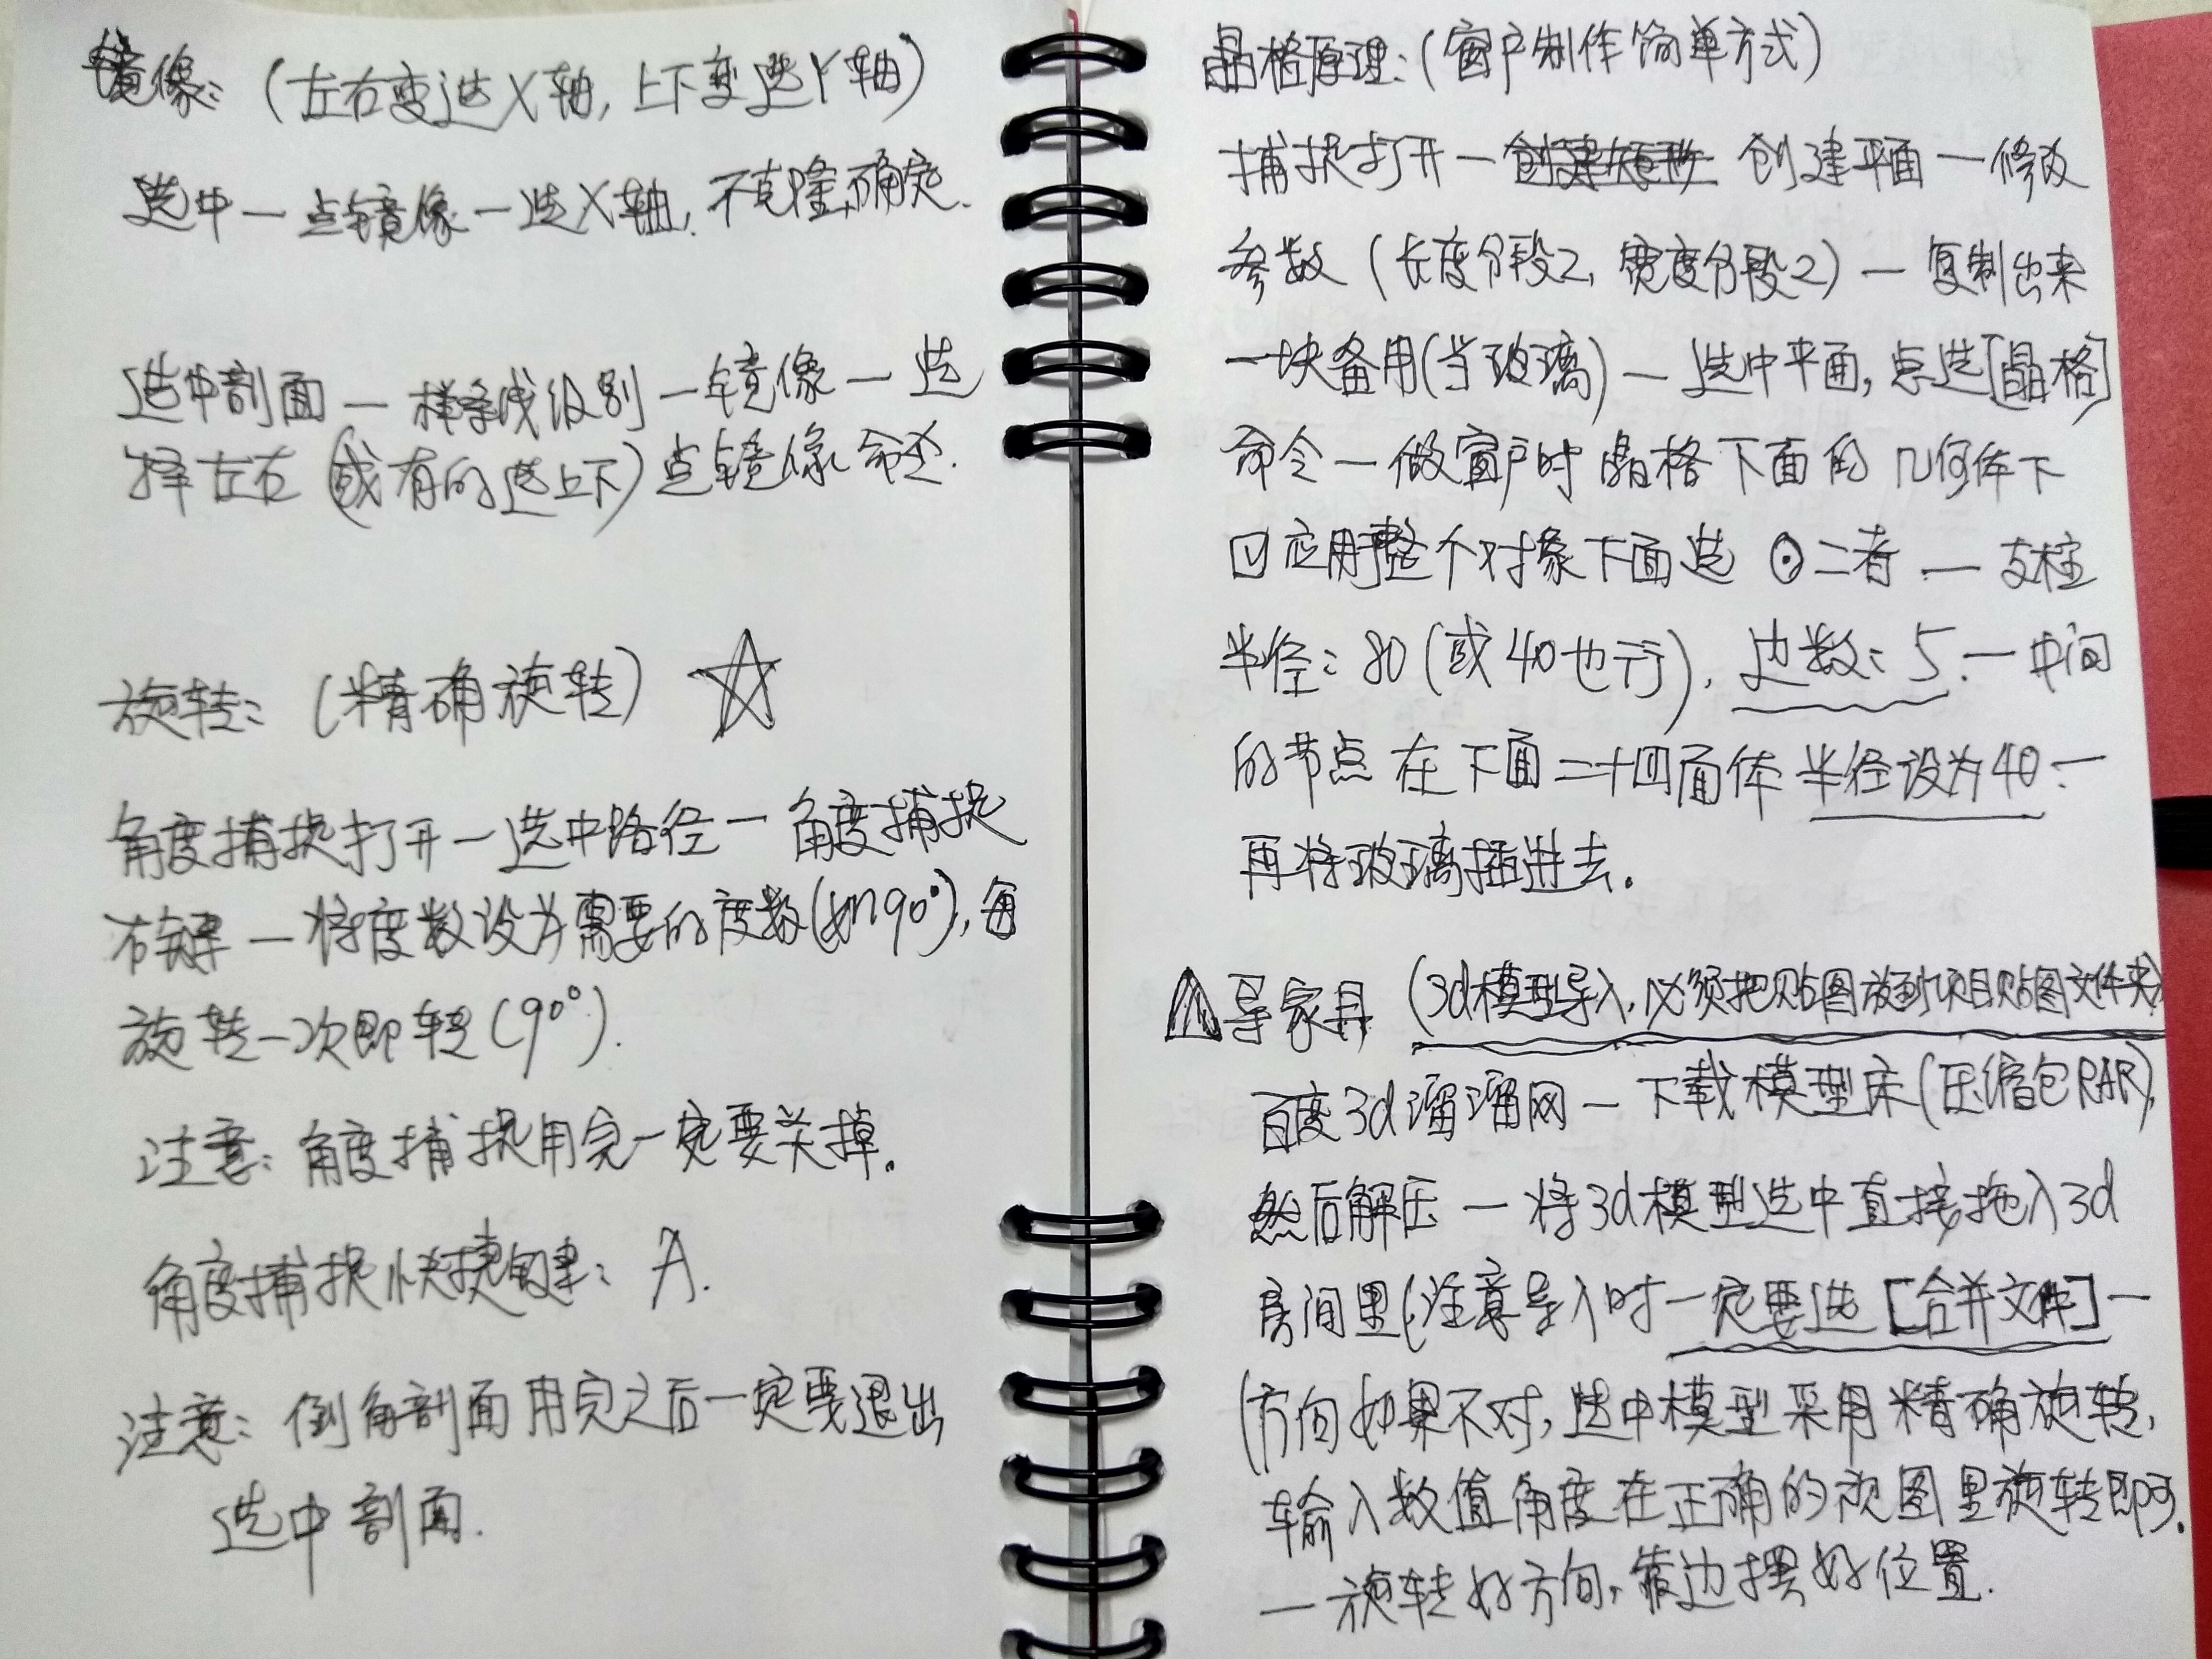 镜像：（左右变选X轴，上下变选Y轴）
选中—点镜像—选X轴，不克隆，确定.
选中剖面—样条线级别—镜像—选
择左右（或有的选上下）点镜像命令.
旋转：（精确旋转）☆
角度捕捉打开—选中路径—角度捕捉
右键—将度数设为需要的度数(如90°)，每
旋转一次即转(90°).
注意：角度捕捉用完一定要关掉。
角度捕捉快捷键：A.
注意：倒角剖面用完之后一定要退出
选中剖面.
晶格原理：（窗户制作简单方式）
捕捉打开—创建矩形 创建平面—修改
参数（长度分段2，宽度分段2）—复制出来
一块备用(当玻璃)—选中平面，点选[晶格]
命令—做窗户时晶格下面的几何体下
☑应用整个对象下面选⊙二者—支柱
半径：80(或40也行)，边数：5.—中间
的节点在下面二十四面体半径设为40.—
再将玻璃插进去。
△导家具（3d模型导入，必须把贴图放到项目贴图文件夹）
百度3d溜溜网—下载模型床(压缩包RAR),
然后解压—将3d模型选中直接拖入3d
房间里(注意导入时一定要选[合并文件]—
(方向如果不对，选中模型采用精确旋转，
输入数值角度在正确的视图里旋转即可.
—旋转好方向，靠边摆好位置.